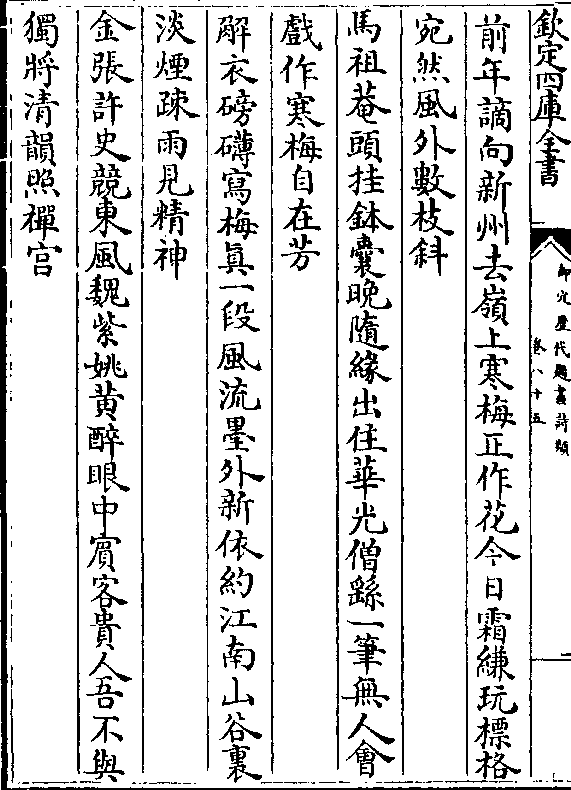 欽定四庫全書
御定歷代題畫詩類
卷八十五
前年謫向新州去嶺上寒梅正作花今日霜縑玩標格
宛然風外數枝斜
馬祖菴頭挂鉢囊晚隨緣出住華光僧繇一筆無人會
戲作寒梅自在芳
解衣磅礴寫梅眞一段風流墨外新依約江南山谷裏
淡煙疎雨見精神
金張許史競東風魏紫姚黄醉眼中賓客貴人吾不與
獨將清韻照禪宫